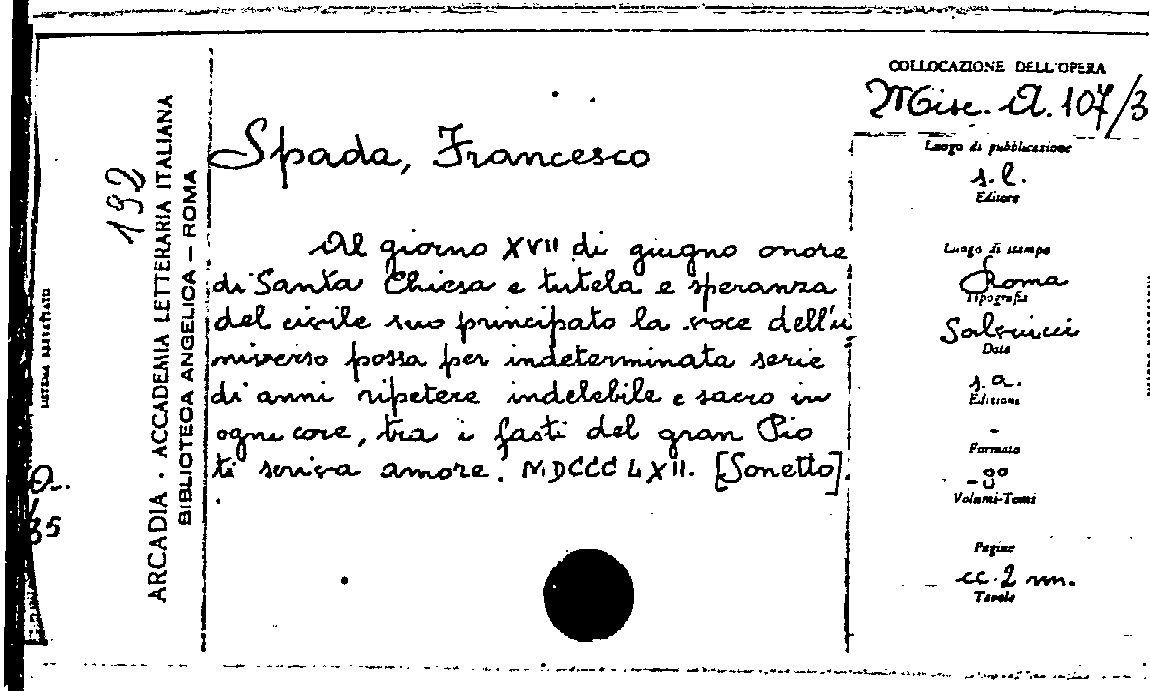 COLLOCAZIONE DELL'OPERA
Misc. A. 107/3
192
ARCADIA - ACCADEMIA LETTERARIA ITALIANA
BIBLIOTECA ANGELICA — ROMA
Spada, Francesco
Al giorno XVII di giugno onore
di Santa Chiesa e tutela e speranza
del civile suo principato la voce dell'u
niverso possa per indeterminata serie
di anni ripetere indelebile e sacro in
ogni core, tra i fasti del gran Pio
ti scriva amore. MDCCCLXII. [Sonetto].
Luogo di pubblicazione
s.l.
Editore
Luogo di stampa
Roma
Tipografia
Salviucci
Data
s.a.
Edizione
-
Formato
-8°
Volumi-Tomi
Pagine
cc. 2 nn.
Tavole
35